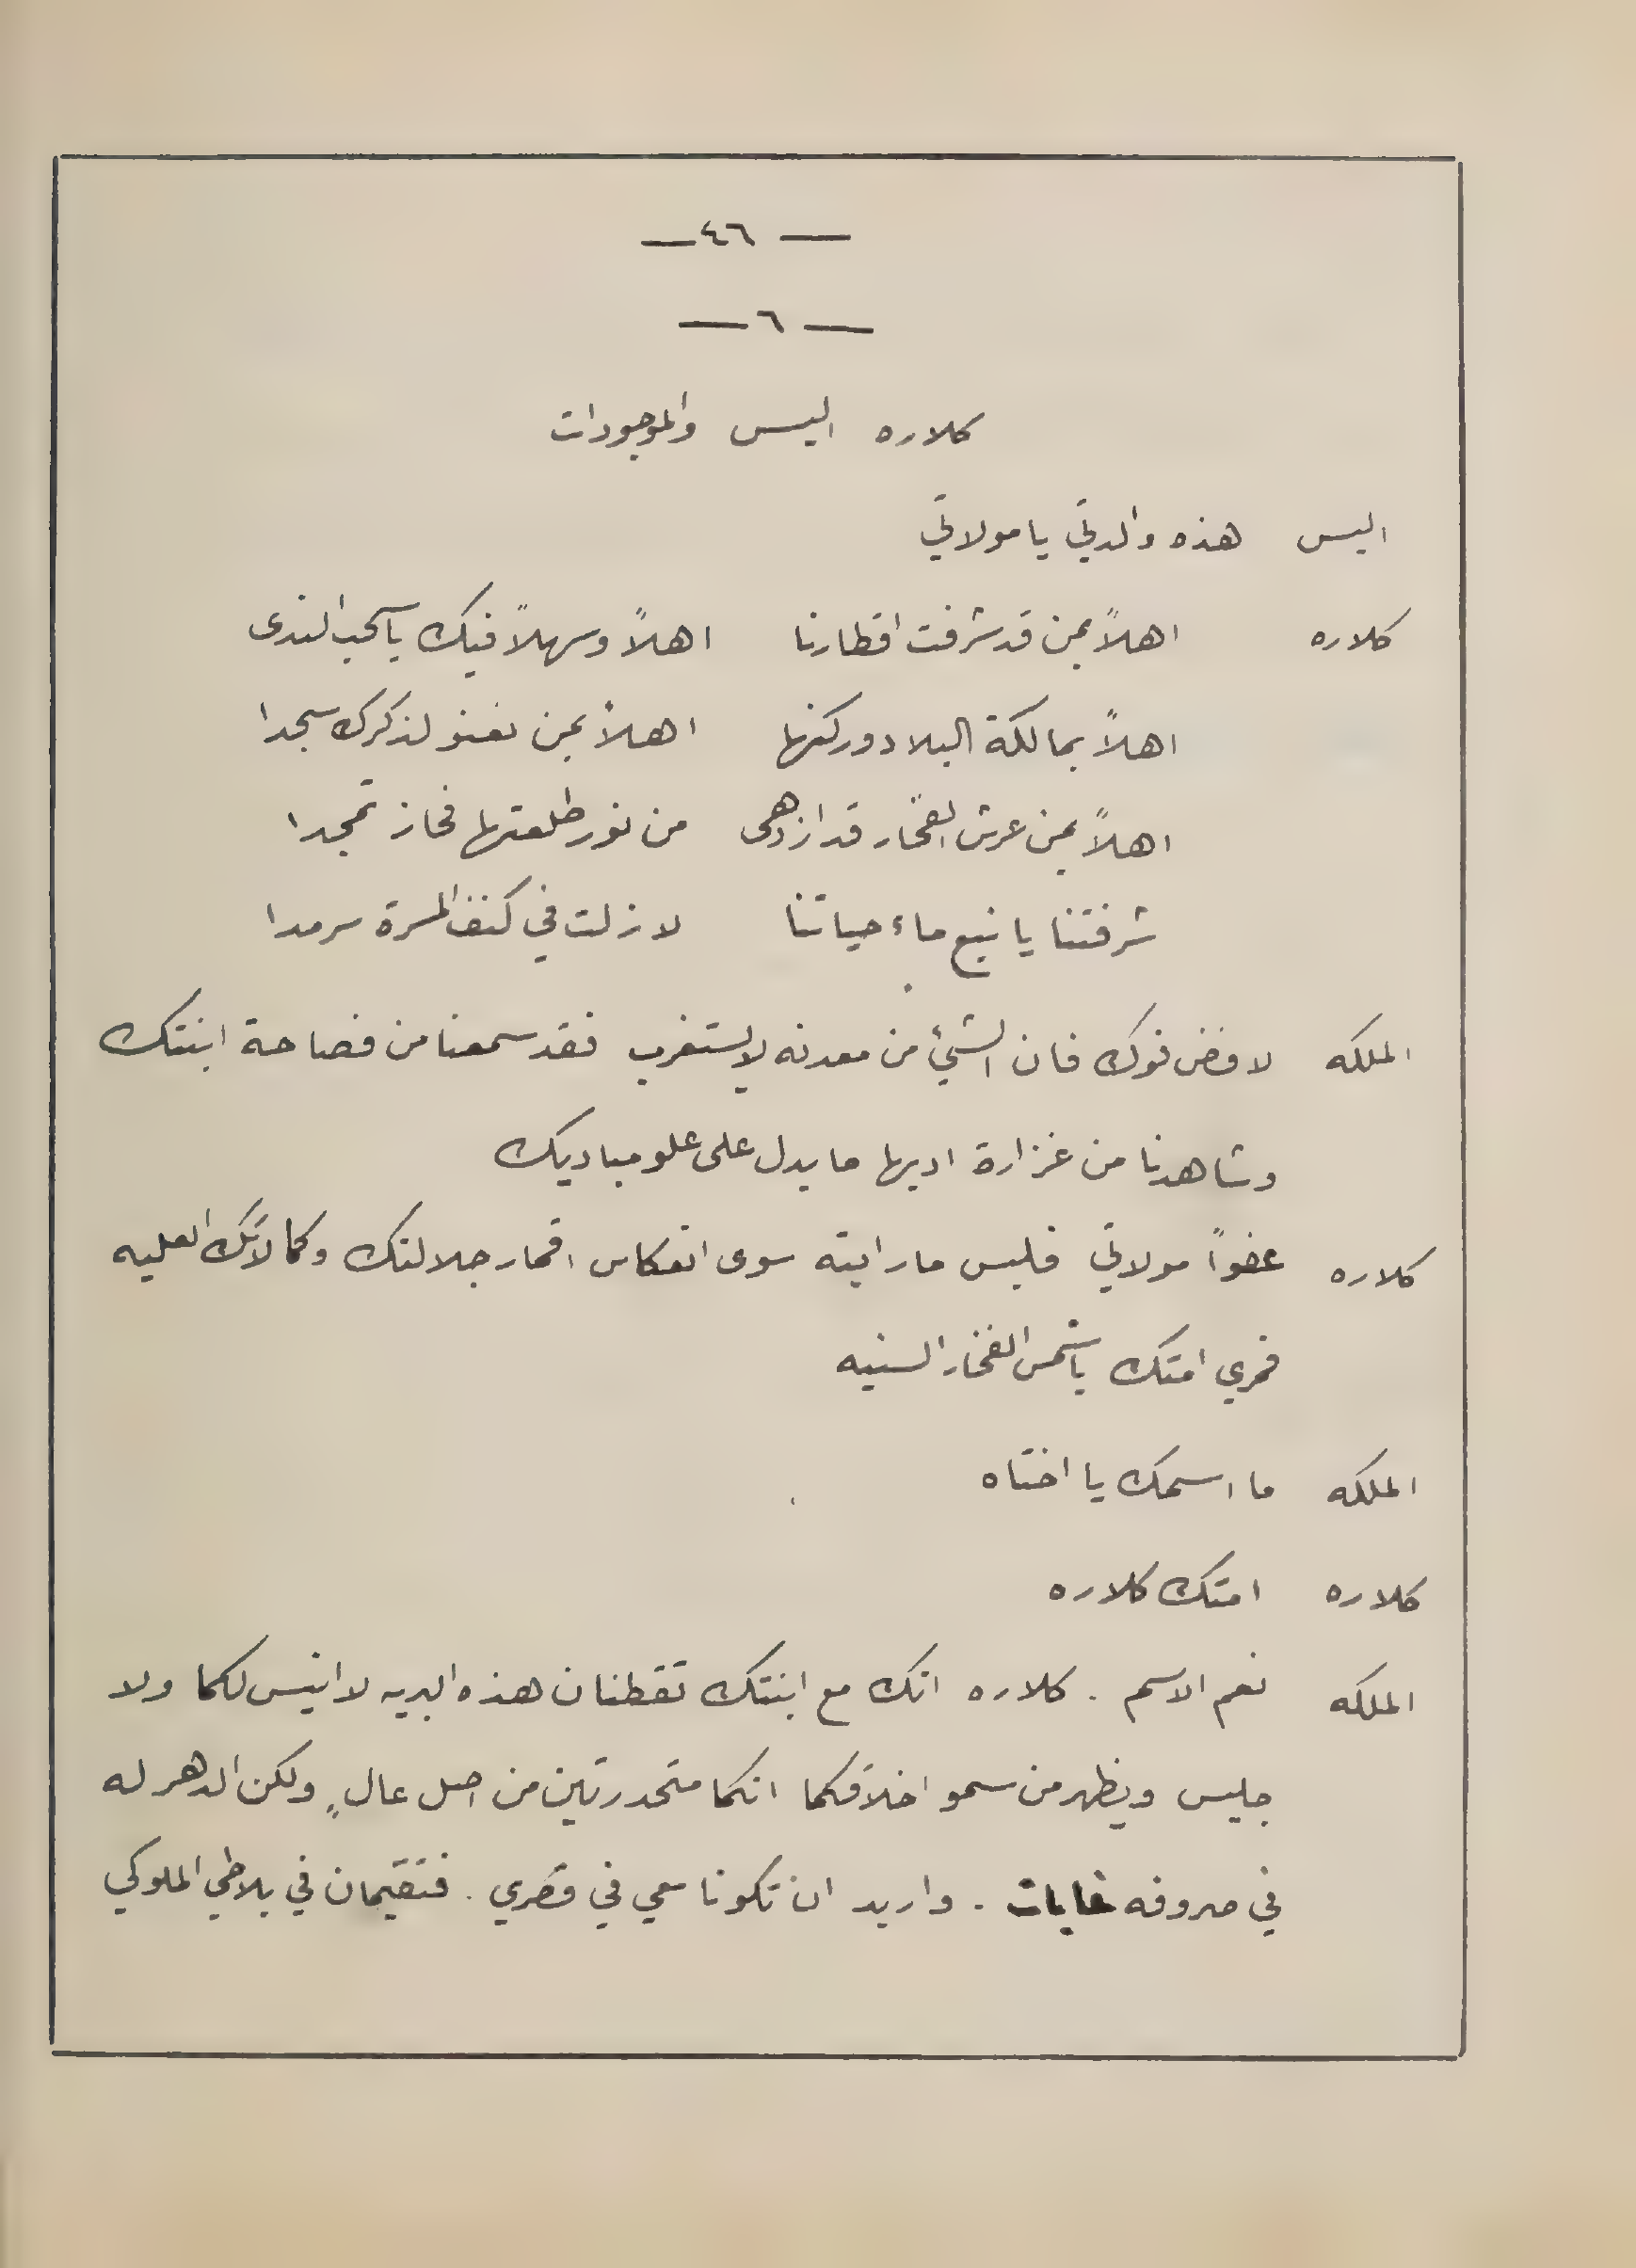 — ٤٦ —
— ٦ —
كلاره اليس والموجودات
اليس هذه والدتي يا مولاتي
كلاره اهلاً بمن قد شرفت اقطارنا اهلاً وسهلاً فيك يا سحب الندى
اهلاً بمالكة البلاد وركنها اهلاً بمن نعنو لذكرك سجدا
اهلاً بمن عرش الفخار قد ازدهى من نور طلعتها فحاز تمجدا
شرفتنا يا نبع ماء حياتنا لا زلت في كنف المسرة سرمدا
الملكه لا فض فوك فان الشيء من معدنه لا يستغرب فقد سمعنا من فصاحة ابنتك
وشاهدنا من غزارة ادبها ما يدل على علو مباديك
كلاره عفواً مولاتي فليس ما رايته سوى انعكاس اقمار جلالتك وكمالاتك العليه
فمري امتك يا شمس الفخار السنيه
الملكه ما اسمك يا اختاه
كلاره امتك كلاره
الملكه نعم الاسم . كلاره انك مع ابنتك تقطنان هذه البريه لا انيس لكما ولا
جليس ويظهر من سمو اخلاقكما انكما متحدرتين من اصل عالٍ ولكن الدهر له
في صروفه غايات . واريد ان تكونا معي في قصري . فتقيمان في بلاطي الملوكي